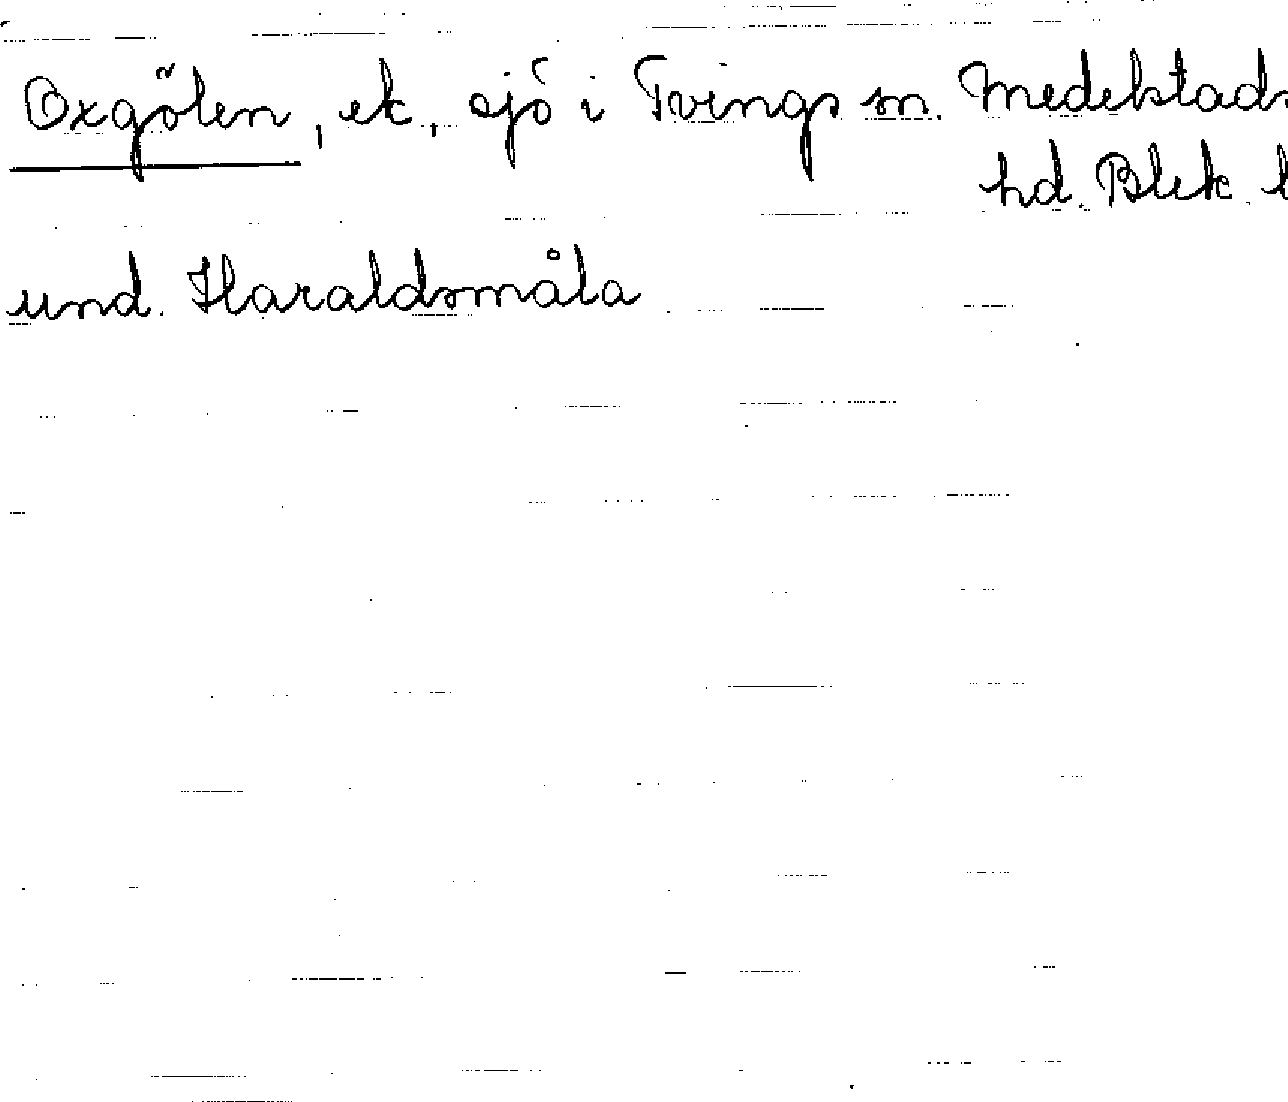 Oxgölen, ek, sjö i Tvings sn. Medelstads
hd. Blek. l
und. Haraldsmåla